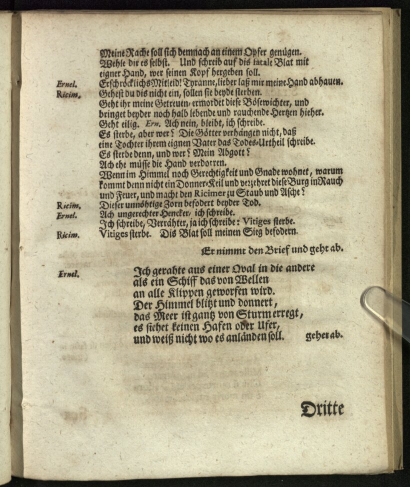 Meine Rache soll sich demnach an einem Opfer genügen.
Wehle dir es selbst. Und schreib auf dis Blat mit
eigner Hand, wer seinen Kopf hergeben soll.
Ernel. Erschröcklichs Mitleid! Tyranne, lieber laß mir meine Hand abhauen.
Ricim. Gehest du dis nicht ein, sollen sie beyde sterben.
Geht ihr meine Getreuen, ermordet diese Bösewichter, und
bringet beyder noch halb lebende und rauchende Hertzen hieher.
Geht eilig. Ern. Ach nein, bleibt, ich schreibe.
Es sterbe, aber wer? Die Götter verhängen nicht, daß
eine Tochter ihrem eignen Vater das Todes-Urtheil schreibe.
Es sterbe denn, und wer? Mein Abgott?
Ach ehe müsse die Hand verdorren.
Wenn im Himmel noch Gerechtigkeit und Gnade wohnet, warum
kommt denn nicht ein Donner-Keil und verzehret diese Burg in Rauch
und Feuer, und macht den Ricimer zu Staub und Asche?
Ricim. Dieser unnöhtige Zorn befodert beyder Tod.
Ernel. Ach ungerechter Hencker, ich schreibe.
Ich schreibe, Verrähter, ja ich schreibe: Vitiges sterbe.
Ricim. Vitiges sterbe. Dis Blat soll meinen Sieg befodern.
Er nimmt den Brief und geht ab.
Ernel. Ich gerahte aus einer Qval in die andere
als ein Schiff das von Wellen
an alle Klippen geworfen wird.
Der Himmel blitzt und donnert,
das Meer ist gantz von Sturm erregt,
es siehet keinen Hafen oder Ufer,
und weiß nicht wo es anländen soll. gehet ab.
Dritte